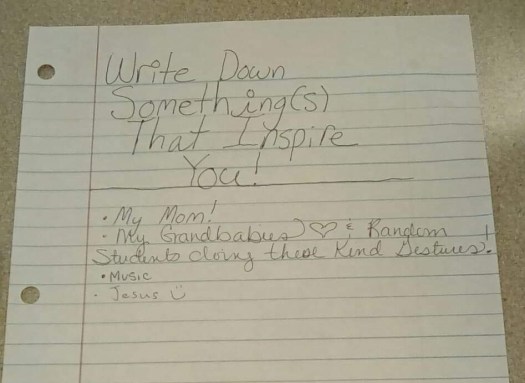 Write Down
Something(s)
That Inspire
You!
• My Mom!
- My Grandbabies) ♡ & Random
Students doing these Kind Gestures!
• Music
- Jesus ü